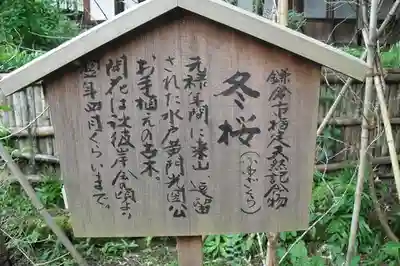 鎌倉市指定天然記念物
冬桜
(ふゆざくら)
元禄年間に来山、逗留
された水戸黄門光圀公
お手植えの古木
開花は秋彼岸会の頃より
翌年四月くらいまで。